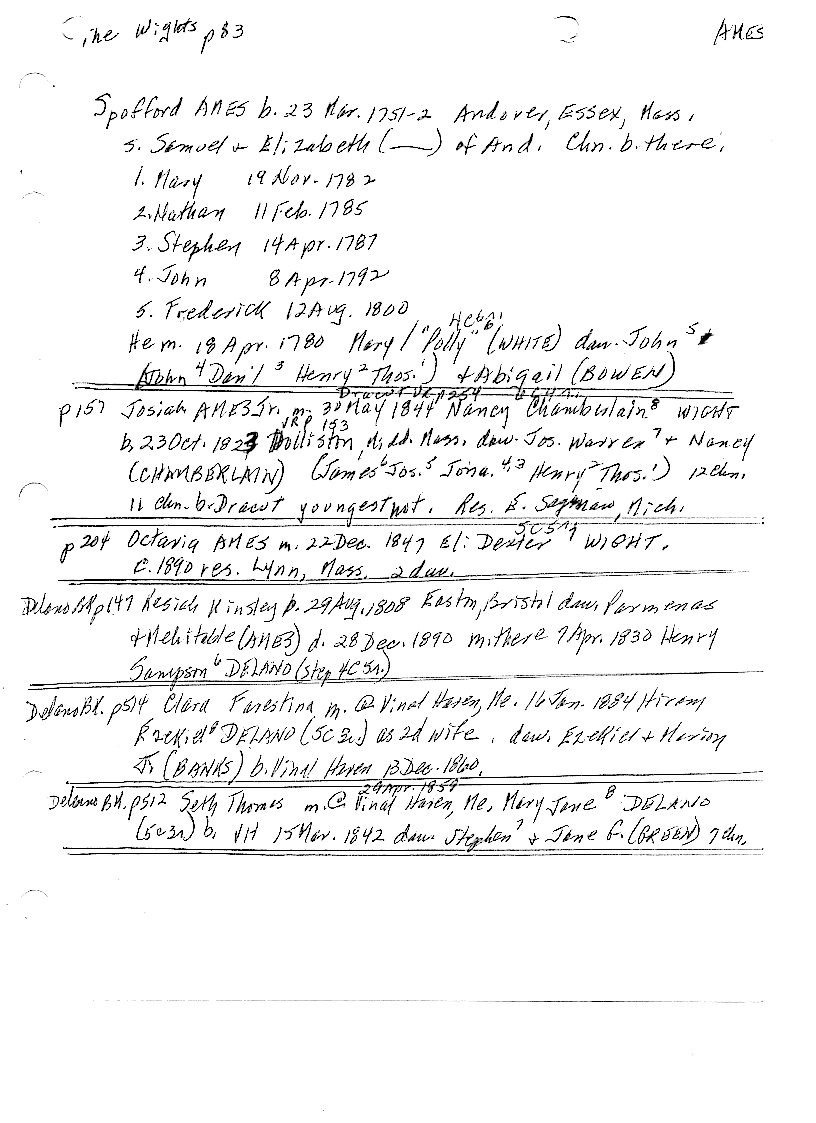 The Wights p83 AMES
Spofford AMES b. 23 Mar. 1751-2 Andover, Essex, Mass.
s. Samuel + Elizabeth (—) of And. Chn. b. there.
1. Mary 19 Nov. 1782
2. Nathan 11 Feb. 1785
3. Stephen 14 Apr. 1787
4. John 8 Apr. 1792
5. Frederick 12 Aug. 1800
He m. 18 Apr. 1780 Mary / "Polly" 6 (WHITE) dau. John 5 +
(John 4 Dan'l 3 Henry 2 Thos. 1) + Abigail (BOWEN)
Dracut VR p254
p157 Josiah AMES Jr. m. 30 May 1844 Nancy Chamberlain 8 WIGHT
VRP 153
b. 23 Oct. 1823 Holliston, Midd. Mass. dau. Jos. Warren 7 + Nancy
(CHAMBERLAIN) (James 6 Jos. 5 Jona. 4,3 Henry 2 Thos. 1) 12 chn.
11 chn. b. Dracut youngest not. Res. E. Saginaw, Mich.
p204 Octavia AMES m. 22 Dec. 1847 Eli Dexter 7 WIGHT.
C. 1890 res. Lynn, Mass. 2 dau.
Delano BK p147 Kesiah Kinsley b. 29 Aug. 1808 Easton, Bristol dau. Parmenas
+ Mehitable (AMES) d. 28 Dec. 1890 m. there 7 Apr. 1830 Henry
Sampson 6 DELANO (Step 4C5r.)
Delano BK. p514 Clara Farestina m. @ Vinal Haven, Me. 16 Jan. 1884 Hiram
Ezekiel 8 DELANO (5C3r.) as 2d wife. dau. Ezekiel + Marion
J. (BANKS) b. Vinal Haven 13 Dec. 1860.
29 Apr. 1859
Delano BK. p512 Seth Thomas m. @ Vinal Haven, Me, Mary Jane 8 DELANO
(5c3r) b. VH 15 Mar. 1842 dau. Stephen 7 + Jane G. (GREEN) 7 chn.